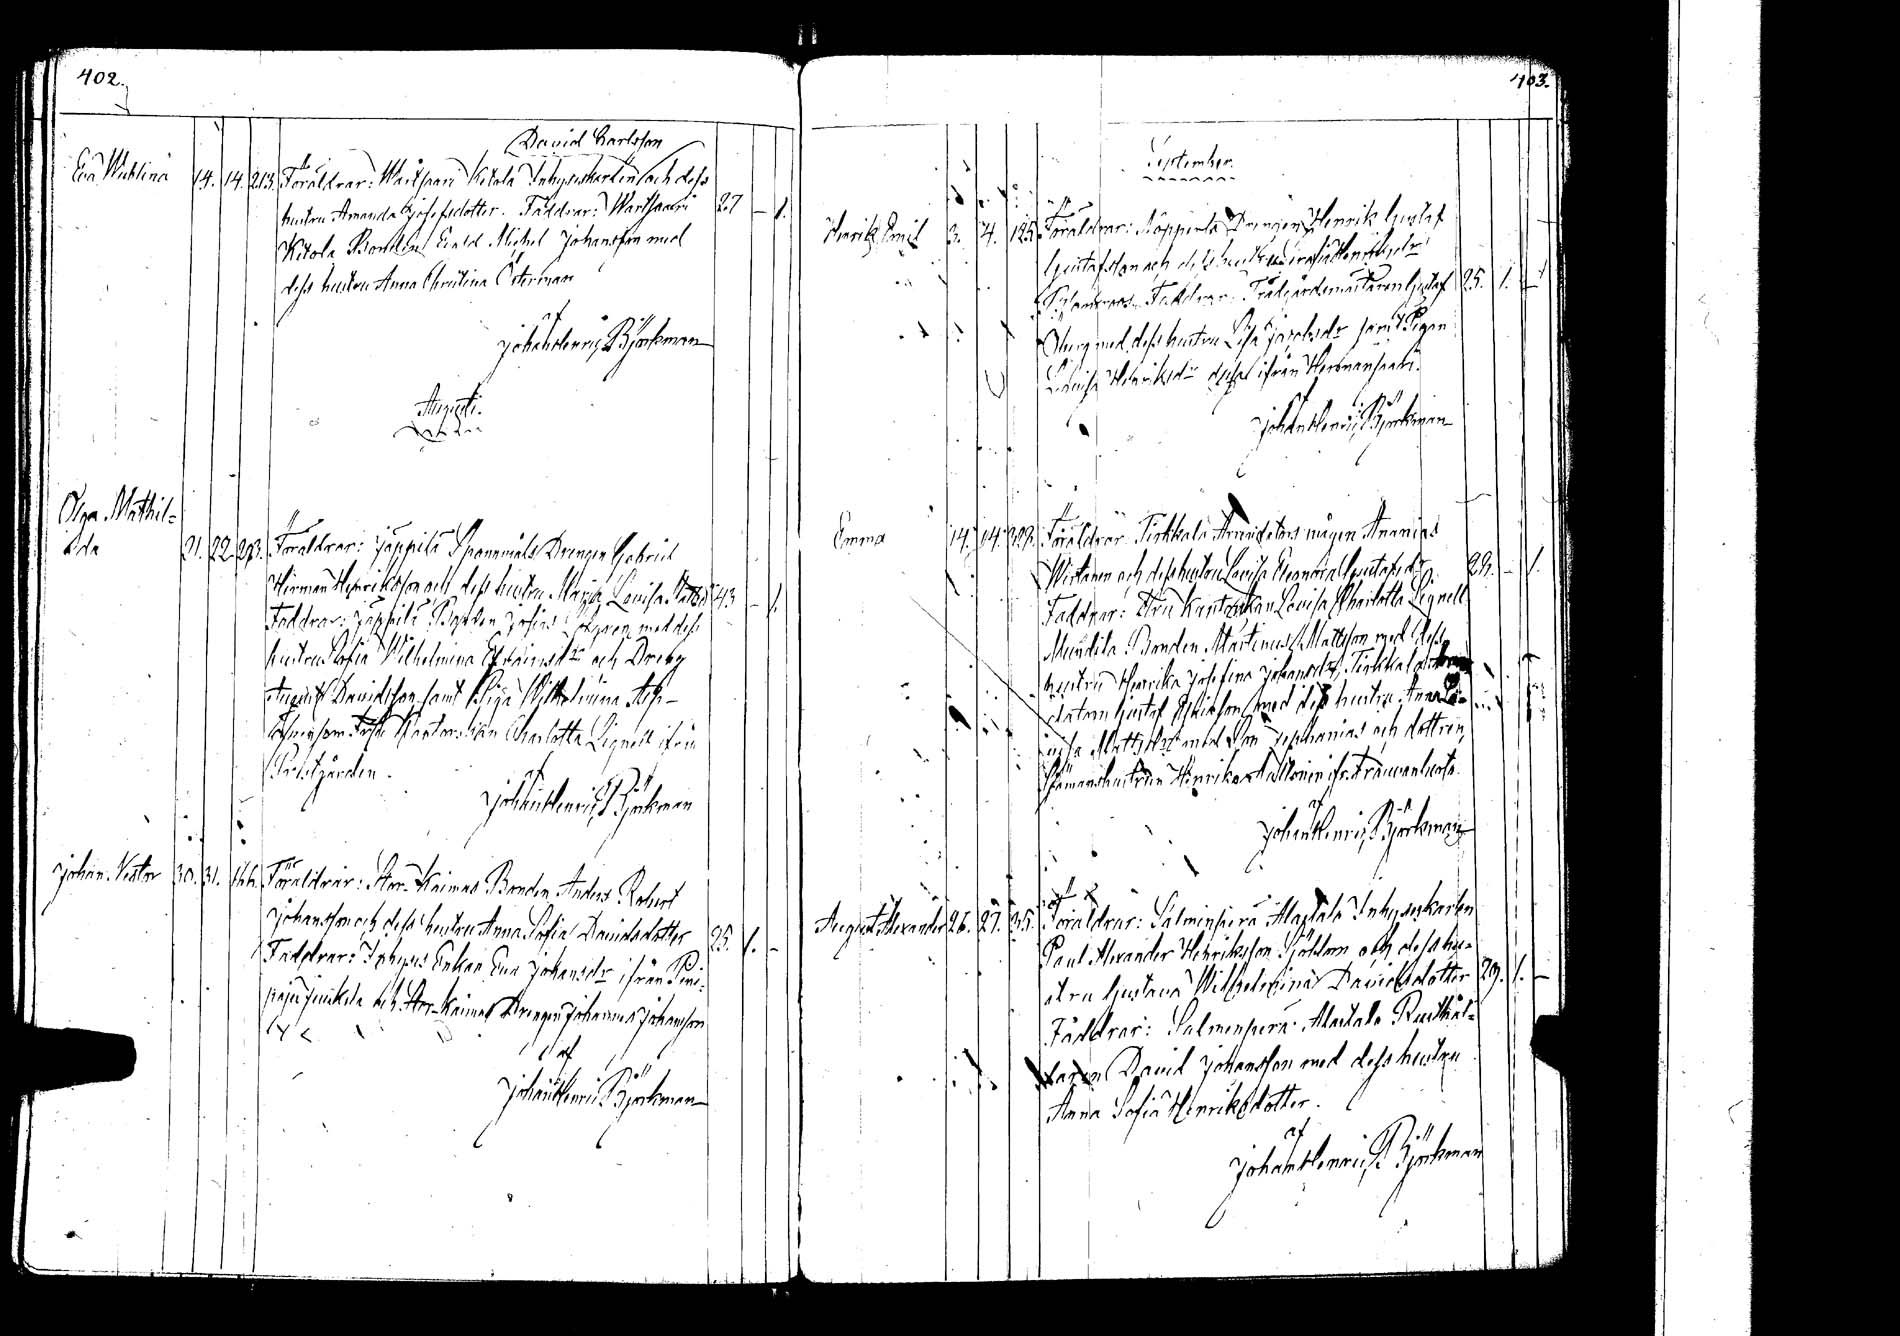 402.
David Carlsson
Eva Wichtina 14. 14. 213. Föräldrar: Wartsaari Ketola Inhyseskarlen och dess
hustru Amanda Josefsdotter. Faddrar: Wartsaari 27 – 1.
Ketola Bonden Evald Michel Johansson med
dess hustru Anna Christina Österman
af
Johan Henric Björkman
Augusti.
Olga Mathil=
da 21. 22. 293. Föräldrar: Jäppilä Spannmåls Drengen Gabriel
Herman Henriksson och dess hustru Maria Lovisa 43 – 1.
Faddrar: Jäppilä Bonden Josias med dess
hustru Sofia Wilhelmina Efraimsdr och Dreng
August Davidsson samt Piga Wilhelmina
Fru Kantorskan Charlotta Lignell ifrån
Prestgården.
af
Johan Henric Björkman
Johan Nestor 30. 31. 166. Föräldrar: Stor-Kaimas Bonden Anders Robert
Johansson och dess hustru Anna Sofia Davidsdotter 25. 1. –
Faddrar: Inhyses Enkan Eva Johansdr ifrån
och Stor-Kaimas Drengen Johannes Johansson
af
Johan Henric Björkman
403.
September.
Henrik Emil 3. 4. 125. Föräldrar: Drengen Henrik Gustaf
Gustafsson och dess hustru Henriksdr
Faddrar: Trädgårdsmästaren Gustaf 25. 1. –
med dess hustru Lisa Jacobsdr samt Pigan
Lovisa Henriksdr ifrån Hermansaari.
af
Johan Henric Björkman
Emma 14. 14. 329. Föräldrar: Tirkkala Arrendators mågen Ananias
Wirtanen och dess hustru Lovisa Eleonora Gustafsdr 29. – 1.
Faddrar: Fru Kantorskan Lovisa Charlotta Lignell
Mundila Bonden Martinus Mattsson med dess
hustru Henrika Josefina Johansdr, Tirkkala
datorn Gustaf med dess hustru Anna
isa Mattsdr med Son Zephanias och dottren,
Henrika
af
Johan Henric Björkman
August Alexander 26. 27. 35. Föräldrar: Salmenperä Alastalo Inhyseskarlen
Paul Alexander Henriksson Sjöblom och dess hu=
stru Gustava Wilhelmina Davidsdotter 29. 1. –
Faddrar: Salmenperä Alastalo Rusthål=
laren David Johansson med dess hustru
Anna Sofia Henriksdotter.
af
Johan Henric Björkman